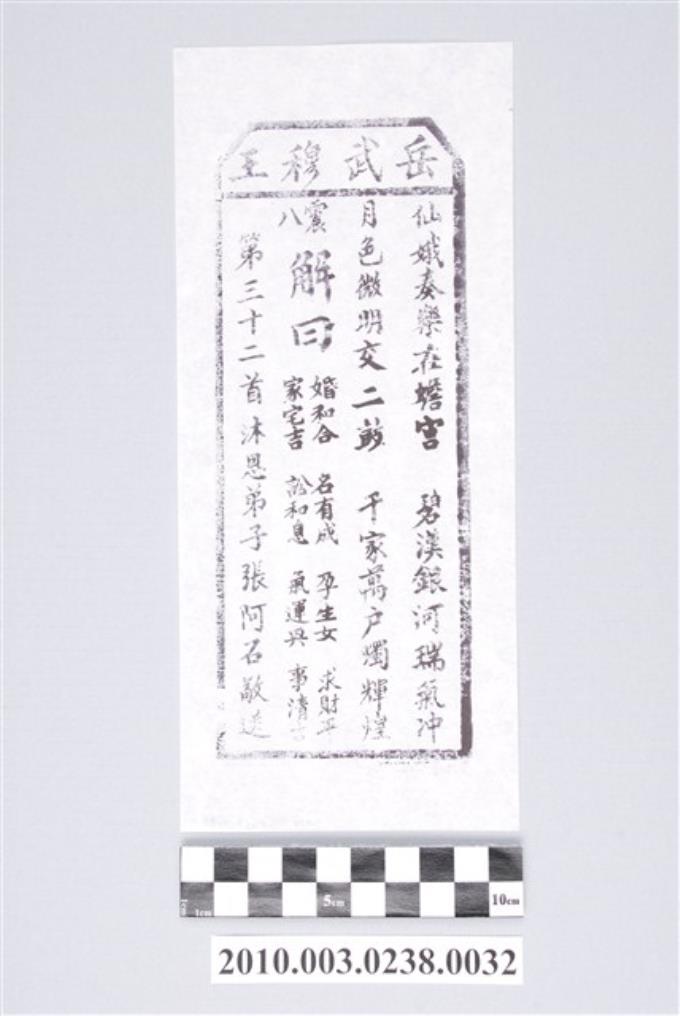 岳武穆王
仙娥奏樂在蟾宮　碧漢銀河瑞氣冲
月色微明交二鼓　千家萬户燭輝煌
震八
解曰
婚和合　名有成　孕生女　求財平
家宅吉　訟和息　氣運興　事清吉
第三十二首沐恩弟子張阿石敬送
1cm
1cm
5cm
10cm
2010.003.0238.0032